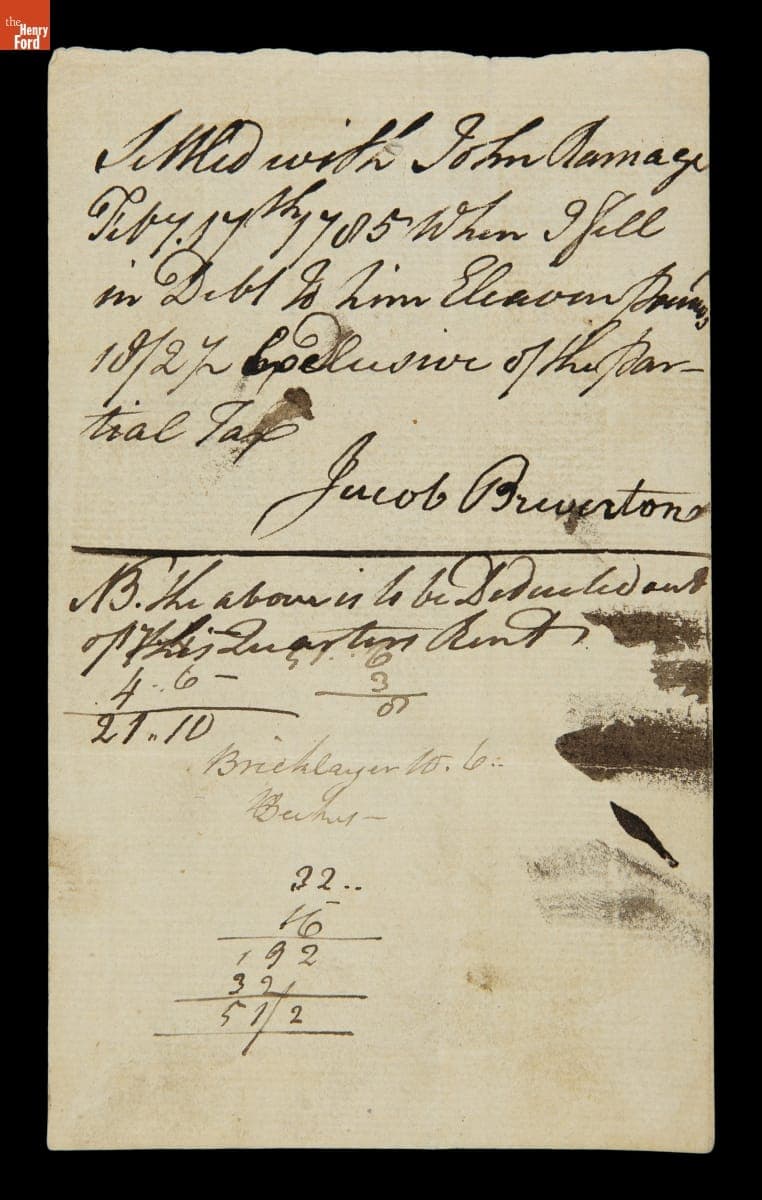 the
Henry
Ford
Settled with John Ramage
Feby. 17th 1785 When I fell
in Debt to him Eleaven Pounds
18/2 Exclusive of the Par-
tial Tax
Jacob Brewerton
NB. the above is to be Deducted out
of this Quarters Rent
6
4..6-
3
21..10
Bricklayer 10.6..
32..
16
192
32/
51/2